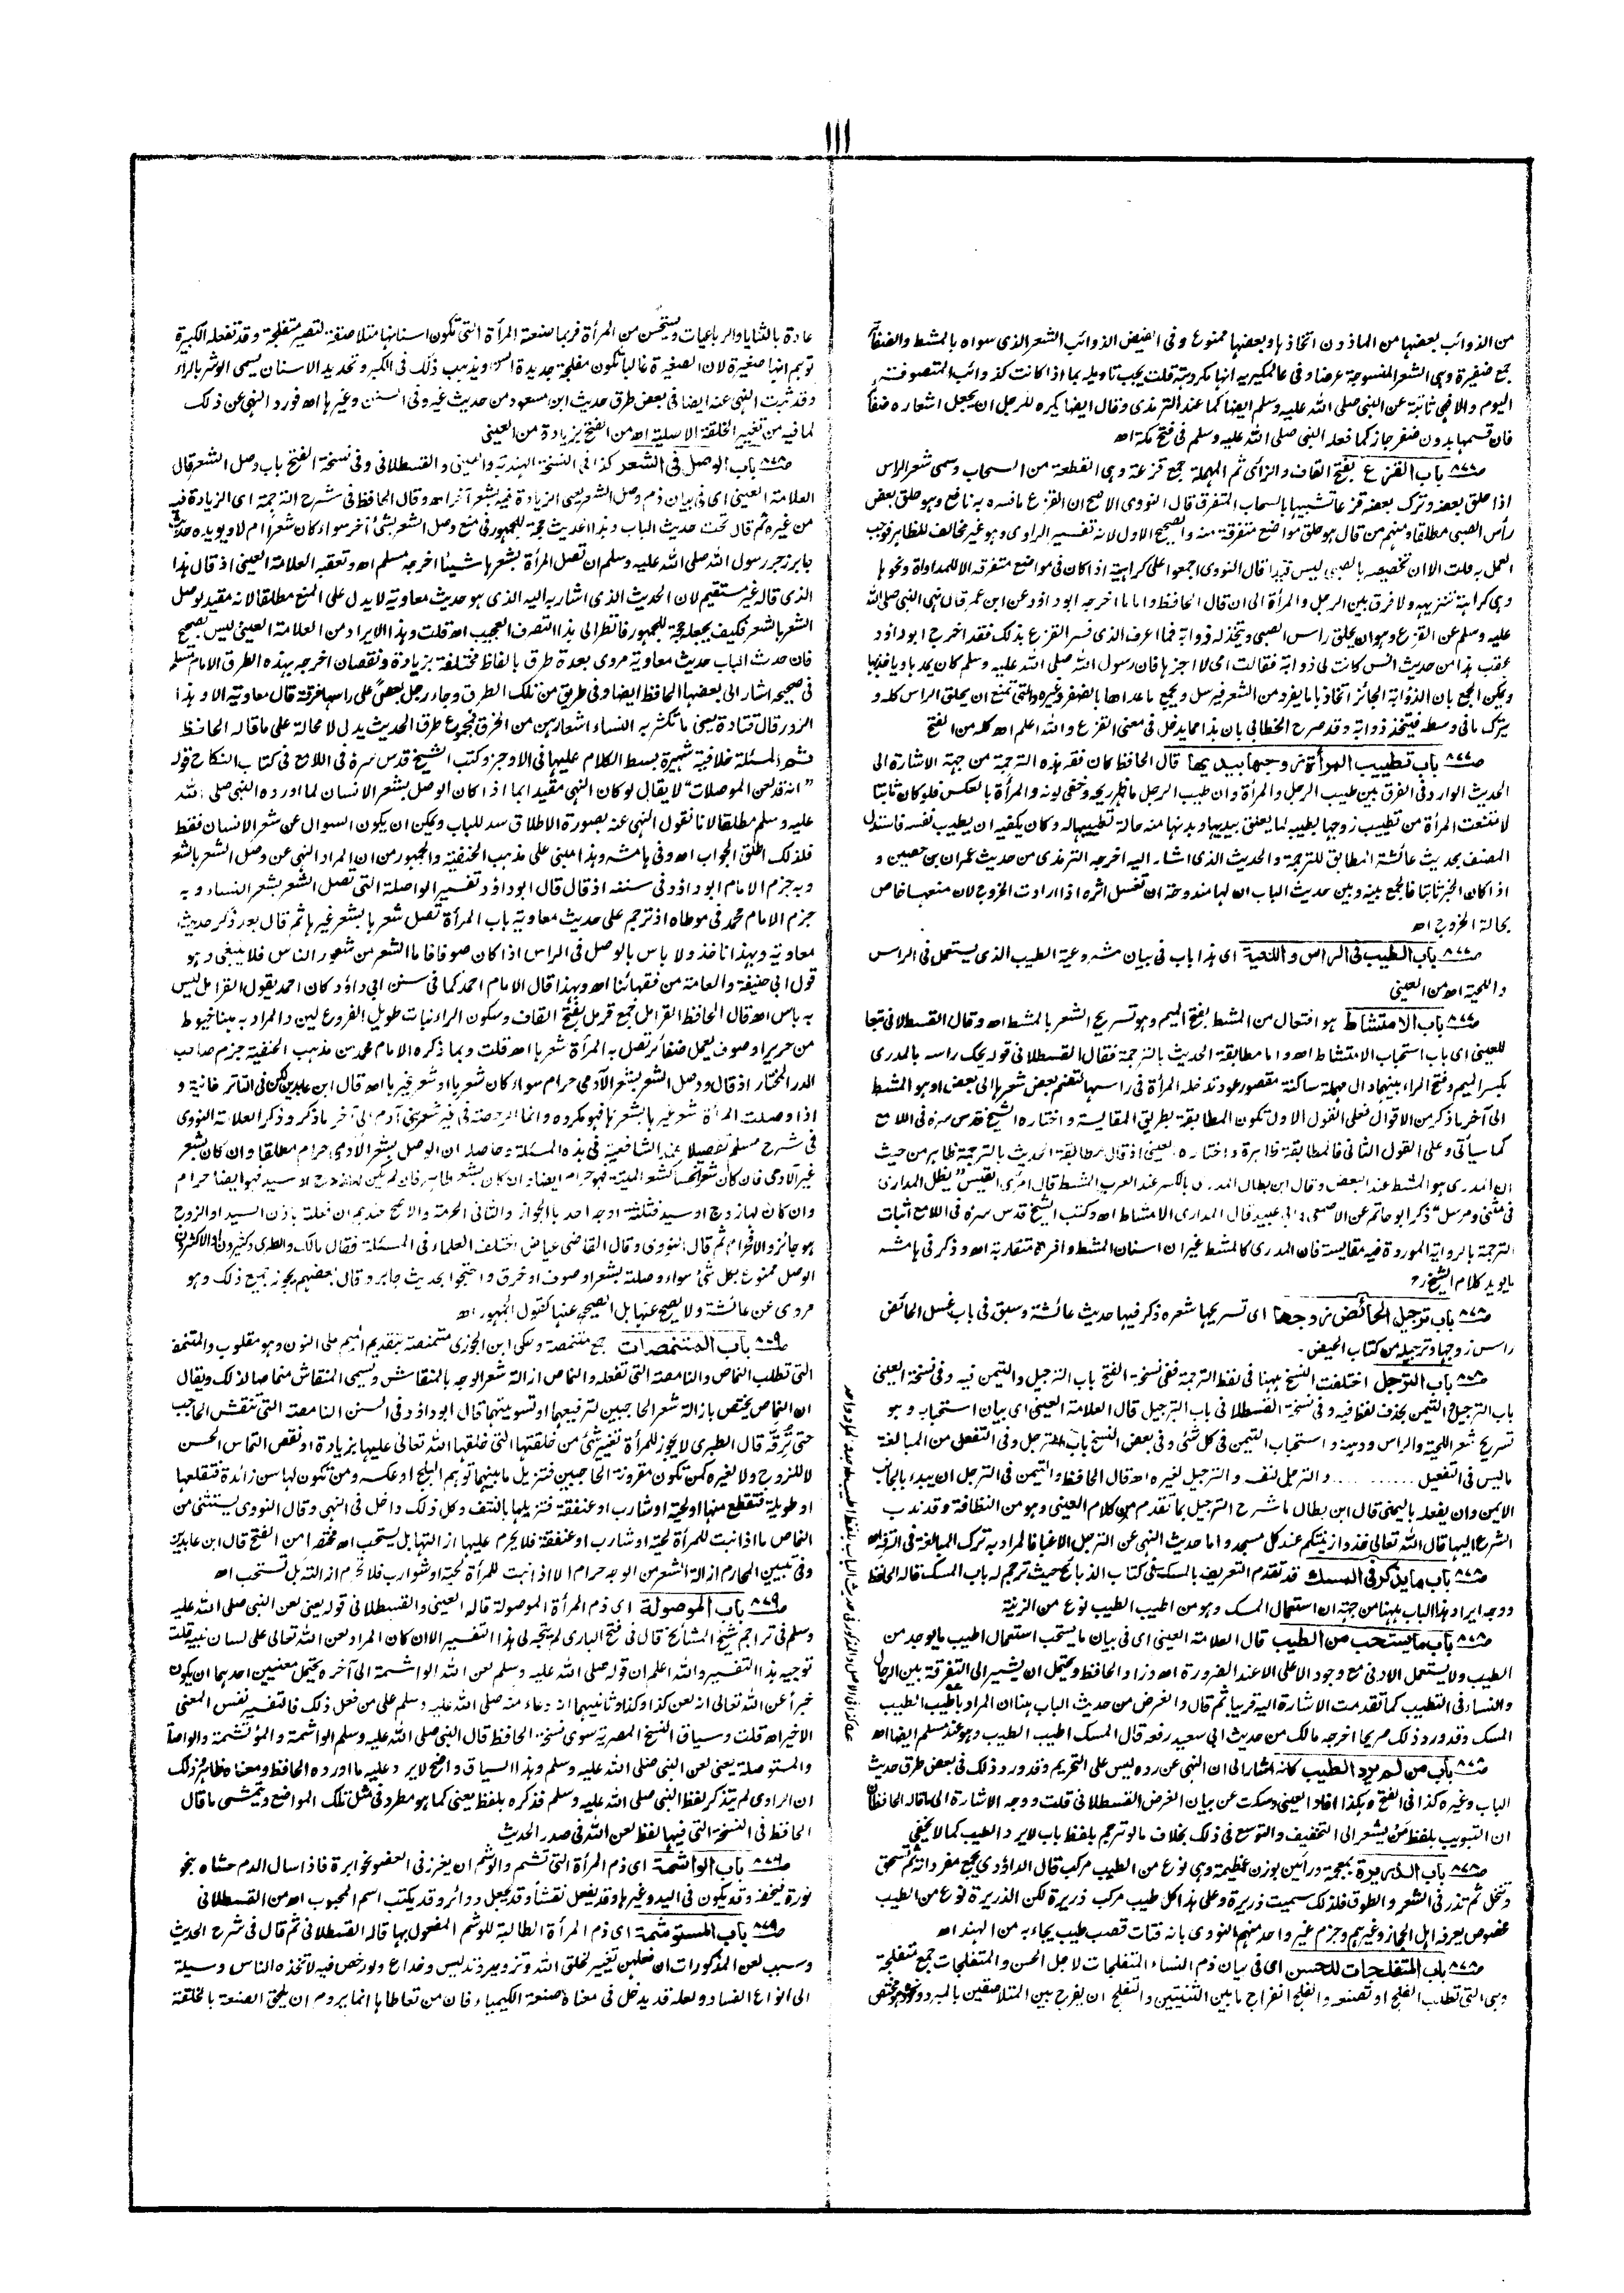 ١١١
من الذوائب بعضها من الماذون اتخاذها وبعضها ممنوع وفى الفيض الذوائب الشعر الذى سواه بالمشط والضفائر
جمع ضفيرة وهى الشعر المنسوجة عرضا وفى عالمكيريه انها مكروهة قلت يجب تاويله بما اذا كانت كذوائب المتصوفة
اليوم والا فهى ثابتة عن النبى صلى الله عليه وسلم ايضا كما عند الترمذى وقال ايضا يكره للرجل ان يجعل اشعاره ضفائر
فان قسمها بدون ضفر جاز كما فعله النبى صلى الله عليه وسلم فى فتح مكة اھ
٨٧٧ باب القزع بفتح القاف والزاى ثم المهملة جمع قزعة وهى القطعة من السحاب وسمى شعر الراس
اذا حلق بعضه وترك بعضه قزعا تشبيها بالسحاب المتفرق قال النووى الاصح ان القزع ما فسره به نافع وهو حلق بعض
رأس الصبى مطلقا ومنهم من قال هو حلق مواضع متفرقة منه والصحيح الاول لانه تفسير الراوى وهو غير مخالف للظاهر فوجب
العمل به قلت الا ان تخصيصه بالصبى ليس قيدا قال النووى اجمعوا على كراهية اذا كان فى مواضع متفرقة الا للمداواة ونحوها
وهى كراهة تنزيه ولا فرق بين الرجل والمرأة الى ان قال الحافظ واما ما اخرجه ابو داؤد عن ابن عمر قال نهى النبى صلى الله
عليه وسلم عن القزع وهو ان يحلق راس الصبى ويتخذ له ذوابة فما اعرف الذى فسر القزع بذلك فقد اخرج ابو داؤد
عقب هذا من حديث انس كانت لى ذوابة فقالت امى لا اجزها فان رسول الله صلى الله عليه وسلم كان يمدها وياخذ بها
ويمكن الجمع بان الذؤابة الجائز اتخاذها ما يفرد من الشعر فيرسل ويجمع ما عداها بالضفر وغيره والتى تمنع ان يحلق الراس كله و
يترك مافى وسطه فيتخذ ذوابة وقد صرح الخطابى بان هذا مما يدخل فى معنى القزع والله اعلم اھ كله من الفتح
٨٧٧ باب تطييب المرأة زوجها بيديها قال الحافظ كان فقه هذه الترجمة من جهة الاشارة الى
الحديث الوارد فى الفرق بين طيب الرجل والمرأة وان طيب الرجل ما ظهر ريحه وخفى لونه والمرأة بالعكس فلو كان ثابتا
لامتنعت المرأة من تطييب زوجها بطيبه لما يعلق بيديها وبدنها منه حالة تطييبها له وكان يكفيه ان يطيب نفسه فاستدل
المصنف بحديث عائشة المطابق للترجمة والحديث الذى اشار اليه اخرجه الترمذى من حديث عمران بن حصين و
اذا كان الخبر ثابتا فالجمع بينه وبين حديث الباب ان لها مندوحة ان تغسل اثره اذا ارادت الخروج لان منعها خاص
بحالة الخروج اھ
٨٧٧ باب الطيب فى الراس واللحية اى هذا باب فى بيان مشروعية الطيب الذى يستعمل فى الراس
واللحية اھ من العينى
٨٧٧ باب الامتشاط هو افتعال من المشط بفتح الميم وهو تسريح الشعر بالمشط اھ وقال القسطلانى تبعا
للعينى اى باب استحباب الامتشاط اھ واما مطابقة الحديث بالترجمة فقال القسطلانى قوله يحك راسه بالمدرى
بكسر الميم وفتح الراء بينهما دال مهملة ساكنة مقصور عود تدخله المرأة فى راسها لتضم بعض شعرها الى بعض او هو المشط
الى آخر ما ذكر من الاقوال فعلى القول الاول تكون المطابقة بطريق المقايسة واختاره الشيخ قدس سره فى اللامع
كما سيأتى وعلى القول الثانى فالمطابقة ظاهرة واختاره العينى اذ قال مطابقة الحديث بالترجمة ظاهر من حيث
ان المدرى هو المشط عند البعض وقال ابن بطال المدرى بالكسر عند العرب المشط قال امرئ القيس "يظل المدارى
فى مثنى ومرسل" ذكر ابو حاتم عن الاصمعى وابى عبيد قال المدارى الامشاط اھ وكتب الشيخ قدس سره فى اللامع اثبات
الترجمة بالرواية الموردة فيه مقايسة فان المدرى كالمشط غير ان اسنان المشط وافرة متقاربة اھ وذكر فى هامشه
ما يويد كلام الشيخ رح
٨٧٨ باب ترجيل الحائض زوجها اى تسريحها شعره ذكر فيها حديث عائشة وسبق فى باب غسل الحائض
راس زوجها وترجيله من كتاب الحيض ۔
٨٧٨ باب الترجل اختلفت النسخ ههنا فى لفظ الترجمة ففى نسخة الفتح باب الترجيل والتيمن فيه وفى نسخة العينى
باب الترجيل والتيمن بحذف لفظ فيه وفى نسخة القسطلانى باب الترجيل قال العلامة العينى اى بيان استحبابه وهو
تسريح شعر اللحية والراس ودهنه واستحباب التيمن فى كل شئ وفى بعض النسخ باب الترجل وفى التفعل من المبالغة
ما ليس فى التفعيل .......... والترجل لنفسه والترجيل لغيره اھ قال الحافظ والتيمن فى الترجل ان يبدء بالجانب
الايمن وان يفعله باليمنى قال ابن بطال ما شرح الترجيل بما تقدم من كلام العينى وهو من النظافة وقد ندب
الشرع اليها قال الله تعالى خذوا زينتكم عند كل مسجد واما حديث النهى عن الترجل الا غبا فالمراد به ترك المبالغة فى الترفه اھ
٨٧٨ باب ما يذكر فى المسك قد تقدم التعريف بالمسك فى كتاب الذبائح حيث ترجم له باب المسك قاله الحافظ
ووجه ايراد هذا الباب ههنا من جهة ان استعمال المسك وهو من اطيب الطيب نوع من الزينة
٨٧٨ باب ما يستحب من الطيب قال العلامة العينى اى فى بيان ما يستحب استعمال اطيب ما يوجد من
الطيب ولا يستعمل الادنى مع وجود الاعلى الا عند الضرورة اھ وزاد الحافظ ويحتمل ان يشير الى التفرقة بين الرجال
والنساء فى التطيب كما تقدمت الاشارة اليه قريبا ثم قال والغرض من حديث الباب ههنا ان المراد باطيب الطيب
المسك وقد ورد ذلك صريحا اخرجه مالك من حديث ابى سعيد رفعه قال المسك اطيب الطيب وهو عند مسلم ايضا اھ
٨٧٨ باب من لم يرد الطيب كانه اشار الى ان النهى عن رده ليس على التحريم وقد ورد ذلك فى بعض طرق حديث
الباب وغيره كذا فى الفتح وهكذا افاد العينى وسكت عن بيان الغرض القسطلانى قلت ووجه الاشارة الى ما قاله الحافظان
ان التبويب بلفظ مَن يشعر الى التخفيف والتوسع فى ذلك بخلاف ما لو ترجم بلفظ باب لا يرد الطيب كما لا يخفى
٨٧٨ باب الذريرة بمعجمة ورائين بوزن عظيمة وهى نوع من الطيب مركب قال الداؤدى يجمع مفرداته ثم تسحق
وتنخل ثم تذر فى الشعر والطوق فلذلك سميت ذريرة وعلى هذا كل طيب مركب ذريرة لكن الذريرة نوع من الطيب
مخصوص يعرفه اهل الحجاز وغيرهم وجزم غير واحد منهم النووى بانه فتات قصب طيب يجاء به من الهند اھ
٨٧٨ باب المتفلجات للحسن اى فى بيان ذم النساء المتفلجات لاجل الحسن والمتفلجات جمع متفلجة
وهى التى تطلب الفلج او تصنعه والفلج انفراج ما بين الثنيتين والتفلج ان يفرج بين المتلاصقين بالمبرد ونحوه وهو مختص
عادة بالثنايا والرباعيات ويستحسن من المرأة فربما صنعته المرأة التى تكون اسنانها متلاصقة لتصير متفلجة وقد تفعله الكبيرة
توهم انها صغيرة لان الصغيرة غالبا تكون مفلجة جديدة السن ويذهب ذلك فى الكبر وتحديد الاسنان يسمى الوشر بالراء
وقد ثبت النهى عنه ايضا فى بعض طرق حديث ابن مسعود من حديث غيره فى السنن وغيرها اھ فورد النهى عن ذلك
لما فيه من تغيير الخلقة الاصلية اھ من الفتح بزيادة من العينى
٨٧٨ باب الوصل فى الشعر كذا فى النسخة الهندية والعينى والقسطلانى وفى نسخة الفتح باب وصل الشعر قال
العلامة العينى اى فى بيان ذم وصل الشعر يعنى الزيادة فيه بشعر آخر اھ وقال الحافظ فى شرح الترجمة اى الزيادة فيه
من غيره ثم قال تحت حديث الباب وهذا الحديث حجة للجمهور فى منع وصل الشعر بشئ آخر سواء كان شعرا ام لا ويويده حديث
جابر زجر رسول الله صلى الله عليه وسلم ان تصل المرأة بشعرها شيئا اخرجه مسلم اھ وتعقبه العلامة العينى اذ قال هذا
الذى قاله غير مستقيم لان الحديث الذى اشار به اليه الذى هو حديث معاوية لا يدل على المنع مطلقا لانه مقيد لوصل
الشعر بالشعر فكيف يجعله حجة للجمهور فانظر الى هذا التصرف العجيب اھ قلت وهذا الايراد من العلامة العينى ليس بصحيح
فان حديث الباب حديث معاوية مروى بعدة طرق بالفاظ مختلفة بزيادة ونقصان اخرجه بهذه الطرق الامام مسلم
فى صحيحه اشار الى بعضها الحافظ ايضا وفى طريق من تلك الطرق وجاء رجل بعصى على راسها خرقة قال معاوية الا وهذا
الزور قال قتادة يعنى ما تكثر به النساء اشعارهن من الخرق فمجموع طرق الحديث يدل لا محالة على ما قاله الحافظ
ثم المسئلة خلافية شهيرة بسط الكلام عليها فى الاوجز وكتب الشيخ قدس سره فى اللامع فى كتاب النكاح قوله
"انه قد لعن الموصلات" لا يقال لو كان النهى مقيدا بما اذا كان الوصل بشعر الانسان لما اورده النبى صلى الله
عليه وسلم مطلقا لانا نقول النهى عنه بصورة الاطلاق سد للباب ويمكن ان يكون السوال عن شعر الانسان فقط
فلذلك اطلق الجواب اھ وفى هامشه وهذا مبنى على مذهب الحنفية والجمهور من ان المراد النهى عن وصل الشعر بالشعر
وبه جزم الامام ابو داؤد فى سننه اذ قال قال ابو داؤد تفسير الواصلة التى تصل الشعر بشعر النساء وبه
جزم الامام محمد فى موطاه اذ ترجم على حديث معاوية باب المرأة تصل شعرها بشعر غيرها ثم قال بعد ذكر حديث
معاوية وبهذا ناخذ ولا باس بالوصل فى الراس اذا كان صوفا فاما الشعر من شعور الناس فلا ينبغى وهو
قول ابى حنيفة والعامة من فقهائنا اھ وبهذا قال الامام احمد كما فى سنن ابى داؤد كان احمد يقول القرامل ليس
به باس اھ قال الحافظ القرامل جمع قرمل بفتح القاف وسكون الراء نبات طويل الفروع لين والمراد به ههنا خيوط
من حرير او صوف يعمل ضفائر تصل به المرأة شعرها اھ قلت وبما ذكره الامام محمد من مذهب الحنفية جزم صاحب
الدر المختار اذ قال ووصل الشعر بشعر الآدمى حرام سواء كان شعرها او شعر غيرها اھ قال ابن عابدين لكن فى التاتر خانية و
اذا وصلت المرأة شعر غيرها بشعرها فهو مكروه وانما الرخصة فى غير شعر بنى آدم الى آخر ما ذكر وذكر العلامة النووى
فى شرح مسلم تفصيلا عند الشافعية فى هذه المسئلة وحاصله ان الوصل بشعر الآدمى حرام مطلقا وان كان بشعر
غير الآدمى فان كان شعرا نجسا كشعر الميتة فهو حرام ايضا وان كان بشعر طاهر فان لم يكن لها زوج او سيد فهو ايضا حرام
وان كان لها زوج او سيد فثلثة اوجه احدها الجواز والثانى الحرمة والاصح عندهم ان فعلته باذن السيد او الزوج
هو جائز والا فحرام ثم قال النووى وقال القاضى عياض اختلف العلماء فى المسئلة فقال مالك والطبرى وكثيرون او الاكثرون
الوصل ممنوع بكل شئ سواء وصلته بشعر او صوف او خرق واحتجوا بحديث جابر وقال بعضهم يجوز جميع ذلك وهو
مروى عن عائشة ولا يصح عنها بل الصحيح عنها كقول الجمهور اھ
٨٧٩ باب المتنمصات جمع متنمصة وحكى ابن الجوزى متنمصة بتقديم الميم على النون وهو مقلوب والمتنمصة
التى تطلب النماص والنامصة التى تفعله والنماص ازالة شعر الوجه بالمنقاش ويسمى المنقاش منماصا لذلك ويقال
ان النماص يختص بازالة شعر الحاجبين لترفيعهما او تسويتهما قال ابو داؤد فى السنن النامصة التى تنقش الحاجب
حتى تُرِقّه قال الطبرى لا يجوز للمرأة تغيير شئ من خلقتها التى خلقها الله تعالى عليها بزيادة او نقص التماس الحسن
لا للزوج ولا لغيره كمن تكون مقرونة الحاجبين فتزيل ما بينهما توهم البلج او عكسه ومن تكون لها سن زائدة فتقلعها
او طويلة فتقطع منها او لحية او شارب او عنفقة فتزيلها بالنتف وكل ذلك داخل فى النهى وقال النووى يستثنى من
النماص ما اذا نبت للمرأة لحية او شارب او عنفقة فلا يحرم عليها ازالتها بل يستحب اھ مختصرا من الفتح قال ابن عابدين
وفى تبيين المحارم ازالة الشعر من الوجه حرام الا اذا نبت للمرأة لحية او شوارب فلا تحرم ازالته بل تستحب اھ
٨٧٩ باب الموصولة اى ذم المرأة الموصولة قاله العينى والقسطلانى قوله يعنى لعن النبى صلى الله عليه
وسلم فى تراجم شيخ المشائخ قال فى فتح البارى لم يتجه لى هذا التفسير الا ان كان المراد لعن الله تعالى على لسان نبيه قلت
توجيه هذا التفسير والله اعلم ان قوله صلى الله عليه وسلم لعن الله الواشمة الى آخره يحتمل معنيين احدهما ان يكون
خبرا عن الله تعالى انه لعن كذا وكذا وثانيهما انه دعاء منه صلى الله عليه وسلم على من فعل ذلك فالتفسير نفس المعنى
الاخير اھ قلت وسياق النسخ المصرية سوى نسخة الحافظ قال النبى صلى الله عليه وسلم الواشمة والموتشمة والواصلة
والمستوصلة يعنى لعن النبى صلى الله عليه وسلم وهذا السياق واضح لا يرد عليه ما اورده الحافظ ومعناه ظاهر وذلك
ان الراوى لم يتذكر لفظ النبى صلى الله عليه وسلم فذكره بلفظ يعنى كما هو مطرد فى مثل تلك المواضع ويتمشى ما قال
الحافظ فى النسخة التى فيها لفظ لعن الله فى صدر الحديث
٨٧٩ باب الواشمة اى ذم المرأة التى تشم والوشم ان يغرز فى العضو نحو ابرة فاذا سال الدم حشاه بنحو
نورة فيخضر وقد يكون فى اليد وغيرها وقد يفعل نقشا وقد يجعل دوائر وقد يكتب اسم المحبوب اھ من القسطلانى
٨٧٩ باب المستوشمة اى ذم المرأة الطالبة للوشم المفعول بها قاله القسطلانى ثم قال فى شرح الحديث
وسبب لعن المذكورات ان فعلهن تغيير لخلق الله وتزوير وتدليس وخداع ولو رخص فيه لاتخذه الناس وسيلة
الى انواع الفساد ولعله قد يدخل فى معناه صنعة الكيمياء فان من تعاطاها انما يروم ان يلحق الصنعة بالخلقة